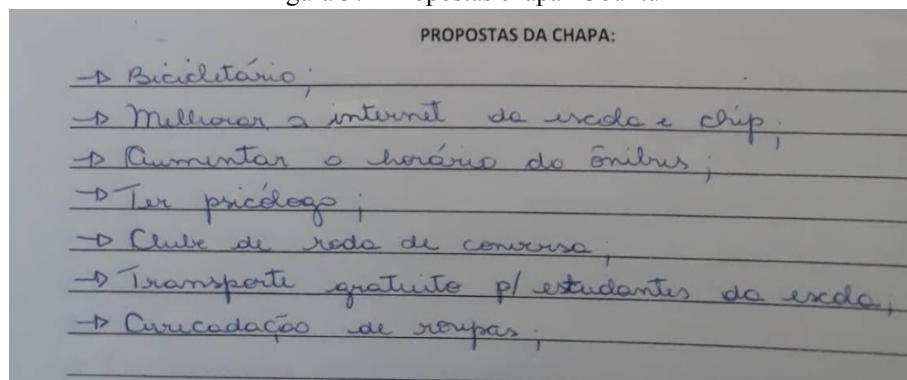 PROPOSTAS DA CHAPA:
→ Bicicletário;
→ Melhorar a internet da escola e chip;
→ Aumentar o horário do ônibus;
→ Ter psicólogo;
→ Clube de roda de conversa;
→ Transporte gratuito p/ estudantes da escola;
→ Arrecadação de roupas;